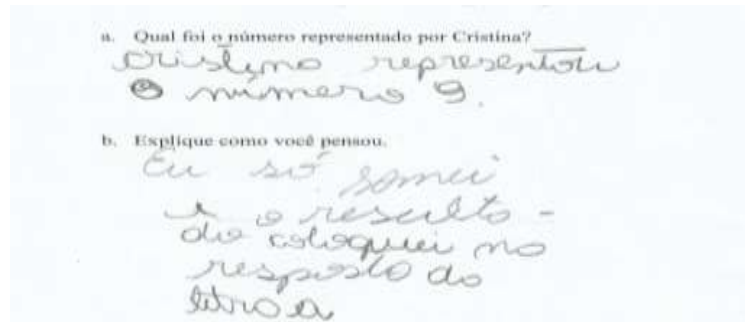 a. Qual foi o número representado por Cristina?
Cristina representou
o número 9.
b. Explique como você pensou.
Eu só somei
e o resulta-
do coloquei no
resposta da
letra a